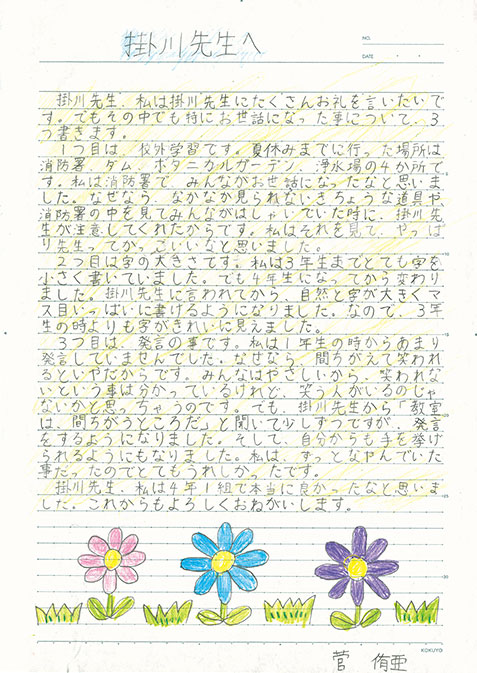 掛川先生へ
NO.
DATE
掛川先生、私は掛川先生にたくさんお礼を言いたいで
す。でもその中でも特にお世話になった事について、3
つ書きます。
1つ目は、校外学習です。夏休みまでに行った場所は
消防署、ダム、ボタニカルガーデン、浄水場の4か所で
す。私は消防署で、みんながお世話になったなと思いま
した。なぜなら、なかなか見られないきちょうな道具や
消防署の中を見てみんながはしゃいでいた時に、掛川先
生が注意してくれたからです。私はそれを見て、やっぱ
り先生ってかっこいいなと思いました。
2つ目は字の大きさです。私は3年生までとても字を
小さく書いていました。でも4年生になってから変わり
ました。掛川先生に言われてから、自然と字が大きくマ
ス目いっぱいに書けるようになりました。なので、3年
生の時よりも字がきれいに見えました。
3つ目は、発言の事です。私は1年生の時からあまり
発言していませんでした。なぜなら、間ちがえて笑われ
るといやだからです。みんなはやさしいから、笑われな
いという事は分かっているけれど、笑う人がいるのじゃ
ないかと思っちゃうのです。でも、掛川先生から「教室
は、間ちがうところだ」と聞いて少しずつですが、発言
をするようになりました。そして、自分からも手を挙げ
られるようにもなりました。私は、ずっとなやんでいた
事だったのでとてもうれしかったです。
掛川先生、私は4年1組で本当に良かったなと思いま
した。これからもよろしくおねがいします。
KOKUYO
菅 侑亜